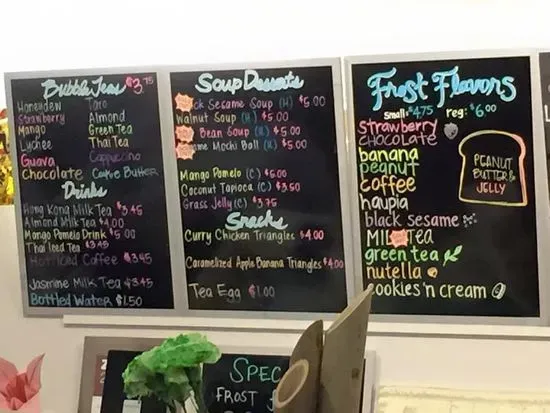 Bubble Teas $3.75
Honeydew Taro
Strawberry Almond
Mango Green Tea
Lychee Thai Tea
Guava Cappuccino
Chocolate Cookie Butter
Drinks
Hong Kong Milk Tea $3.45
Almond Milk Tea $4.00
Mango Pomelo Drink $5.00
Thai Iced Tea $3.45
Coffee $3.45
Jasmine Milk Tea $3.45
Bottled Water $1.50
Soup Desserts
ck Sesame Soup (H) $5.00
Walnut Soup (H) $5.00
Bean Soup (H) $5.00
me Mochi Ball (H) $5.00
Mango Pomelo (C) $6.00
Coconut Tapioca (C) $3.50
Grass Jelly (C) $3.75
Snacks
Curry Chicken Triangles $4.00
Caramelized Apple Banana Triangles $4.00
Tea Egg $1.00
Frost Flavors
Small $4.75 reg: $6.00
strawberry
chocolate
banana
peanut
coffee
haupia
black sesame
Milk Tea
green tea
nutella
cookies 'n cream
PEANUT
BUTTER &
JELLY
SPEC
FROST